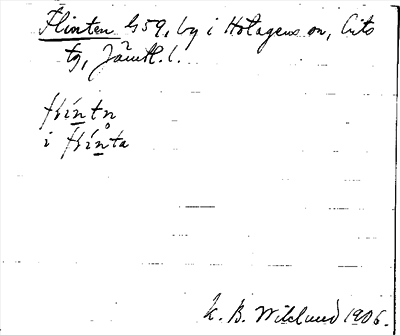 Flinten G59, by i Hotagens sn, Lits
tg, Jämtl. l.
flíntn
i flínta
K. B. Wiklund 1906.